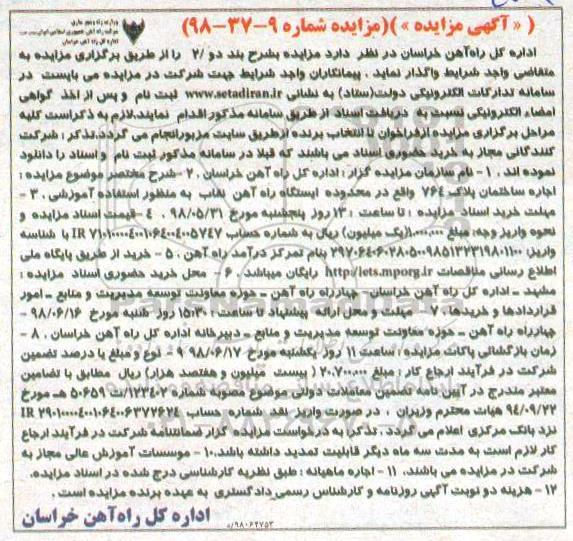 وزارت راه و شهرسازی
شرکت راه آهن جمهوری اسلامی ایران
اداره کل راه آهن خراسان
( « آگهی مزایده » )(مزایده شماره ۹-۳۷-۹۸)
اداره کل راه‌آهن خراسان در نظر دارد مزایده بشرح بند دو /۲ را از طریق برگزاری مزایده به
متقاضی واجد شرایط واگذار نماید . پیمانکاران واجد شرایط جهت شرکت در مزایده می بایست در
سامانه تدارکات الکترونیکی دولت(ستاد) به نشانی www.setadiran.ir ثبت نام و پس از اخذ گواهی
امضاء الکترونیکی نسبت به دریافت اسناد از طریق سامانه مذکور اقدام نمایند.لازم به ذکراست کلیه
مراحل برگزاری مزایده ازفراخوان تا انتخاب برنده ازطریق سایت مزبورانجام می گردد.تذکر : شرکت
کنندگانی مجاز به خرید حضوری اسناد می باشند که قبلا در سامانه مذکور ثبت نام و اسناد را دانلود
نموده اند . ۱ - نام سازمان مزایده گزار : اداره کل راه آهن خراسان . ۲ -شرح مختصر موضوع مزایده :
اجاره ساختمان پلاک ۷۶۴ واقع در محدوده ایستگاه راه آهن نقاب به منظور استفاده آموزشی . ۳ -
مهلت خرید اسناد مزایده : تا ساعت : ۱۳ روز پنجشنبه مورخ ۹۸/۰۵/۳۱ . ۴ -قیمت اسناد مزایده و
نحوه واریز وجه: مبلغ ۱.۰۰۰.۰۰۰(یک میلیون) ریال به شماره حساب IR ۷۱۰۱۰۰۰۰۴۰۰۱۰۶۴۰۰۴۰۰۵۷۴۷ با شناسه
واریز: ۲۹۷۰۶۴۰۶۰۲۸۰۵۰۰۹۸۵۱۳۲۳۱۹۸۰۱۱۰۰ بنام تمرکز درآمد راه آهن . ۵ - خرید از طریق پایگاه ملی
اطلاع رسانی مناقصات http//iets.mporg.ir رایگان میباشد . ۶ - محل خرید حضوری اسناد مزایده :
مشهد ـ اداره کل راه آهن خراسان ـ چهارراه راه آهن ـ حوزه معاونت توسعه مدیریت و منابع ـ امور
قراردادها و خریدها. ۷ - مهلت و محل ارائه پیشنهاد تا ساعت : ۱۵:۳۰ روز شنبه مورخ ۹۸/۰۶/۱۶ -
چهارراه راه آهن ـ حوزه معاونت توسعه مدیریت و منابع ـ دبیرخانه اداره کل راه آهن خراسان . ۸ -
زمان بازگشائی پاکات مزایده : ساعت ۱۱ روز یکشنبه مورخ ۹۸/۰۶/۱۷ ۹ - نوع و مبلغ یا درصد تضمین
شرکت در فرآیند ارجاع کار : مبلغ ۲۰.۷۰۰.۰۰۰ ( بیست میلیون و هفتصد هزار) ریال مطابق با تضامین
معتبر مندرج در آیین نامه تضمین معاملات دولتی موضوع مصوبه شماره ۱۲۳۴۰۲/ت ۵۰۶۵۹ هـ مورخ
۹۴/۰۹/۲۲ هیات محترم وزیران ، در صورت واریز نقد شماره حساب IR ۲۹۰۱۰۰۰۰۴۰۰۱۰۶۴۰۰۶۳۷۷۶۲۴
نزد بانک مرکزی اعلام می گردد . تذکر: به درخواست مزایده گزار ضمانتنامه شرکت در فرآیند ارجاع
کار لازم است به مدت سه ماه دیگر قابلیت تمدید داشته باشد.۱۰ - موسسات آموزش عالی مجاز به
شرکت در مزایده می باشند. ۱۱ - اجاره ماهیانه : طبق نظریه کارشناسی درج شده در اسناد مزایده.
۱۲ - هزینه دو نوبت آگهی روزنامه و کارشناس رسمی دادگستری به عهده برنده مزایده است .
اداره کل راه‌آهن خراسان
۹۸۰۶۴۷۵۳/ه